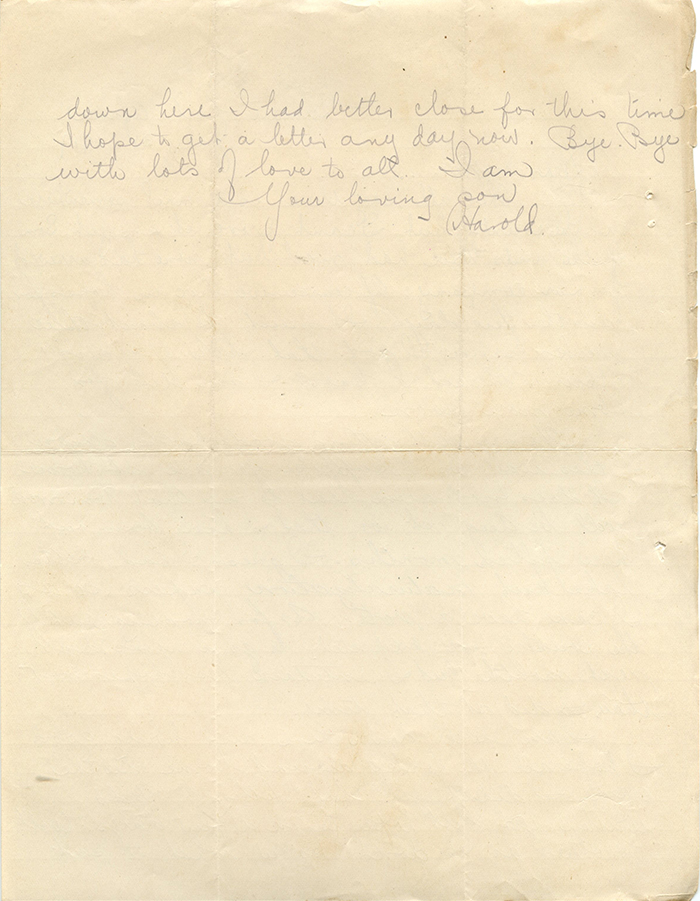 down here I had better close for this time
I hope to get a letter any day now. Bye. Bye
with lots of love to all. I am
Your loving son
Harold.